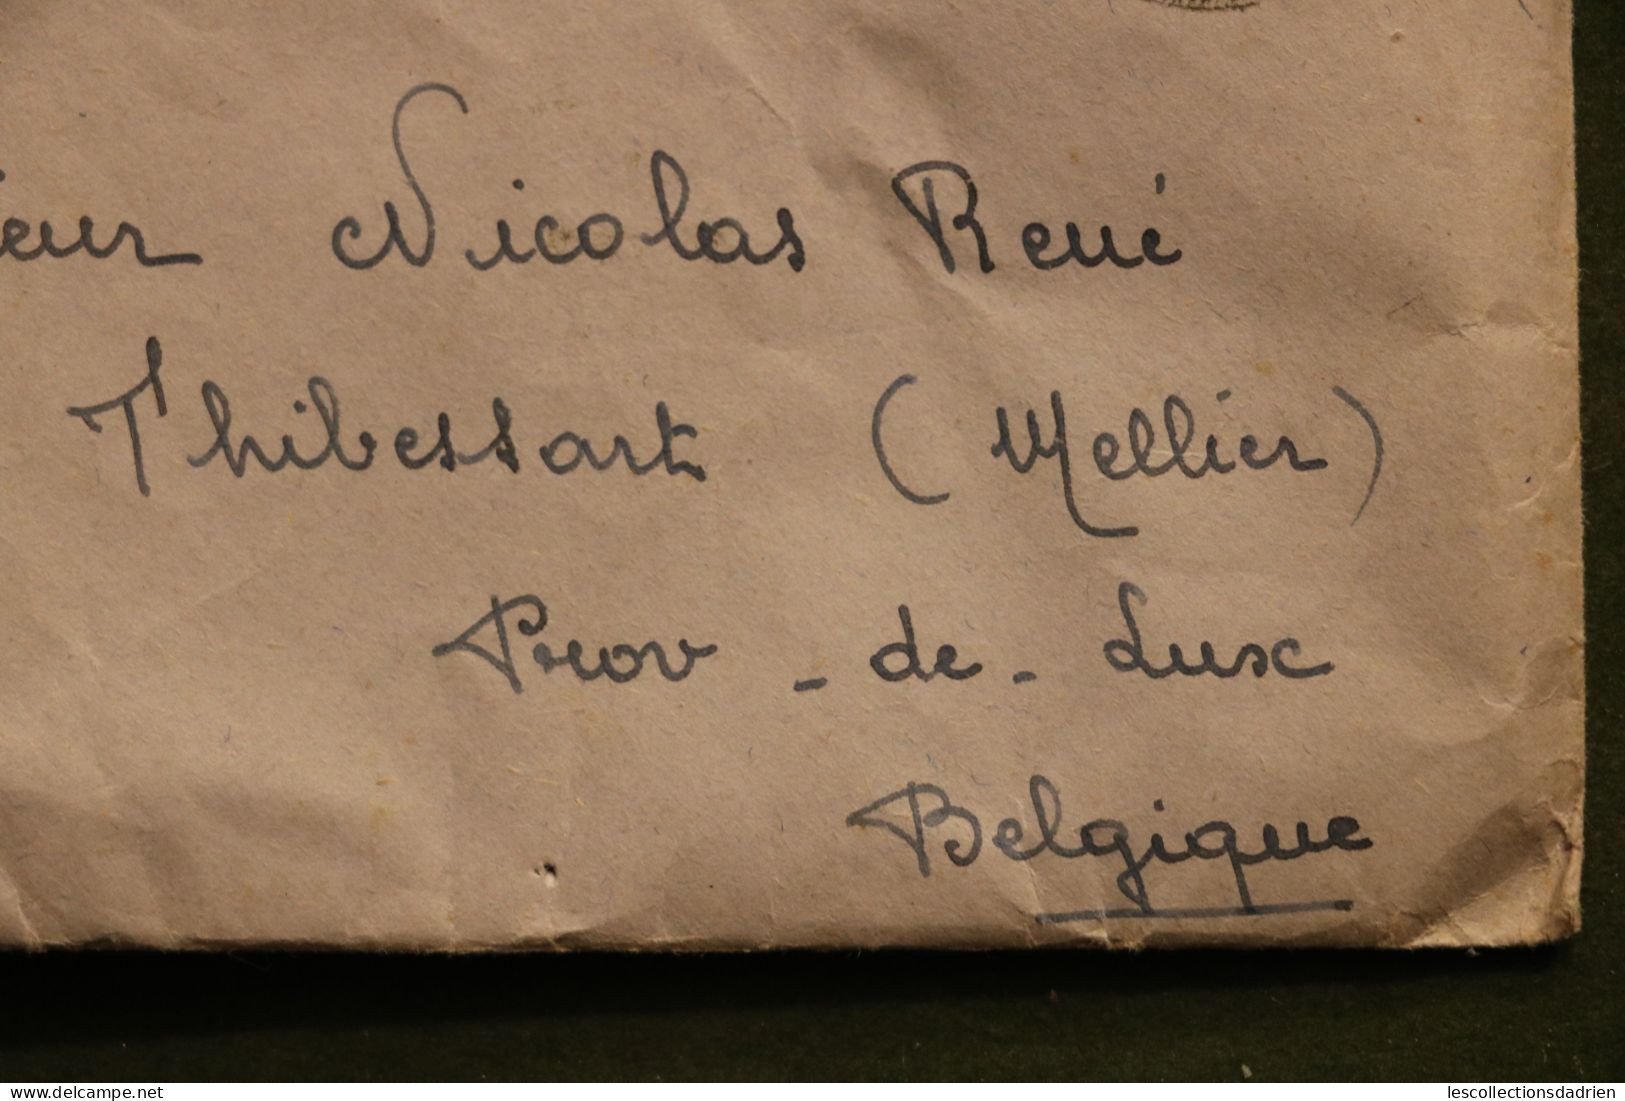 ieur Nicolas René
Thibessart (Mellier)
Prov - de - Lux
Belgique
delcampe.net
lescollectionsdadrien